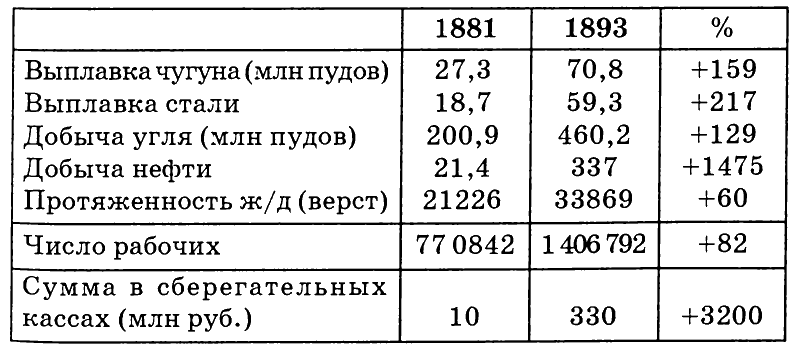 1881 1893 %
Выплавка чугуна (млн пудов) 27,3 70,8 +159
Выплавка стали 18,7 59,3 +217
Добыча угля (млн пудов) 200,9 460,2 +129
Добыча нефти 21,4 337 +1475
Протяженность ж/д (верст) 21226 33869 +60
Число рабочих 770842 1406792 +82
Сумма в сберегательных
кассах (млн руб.) 10 330 +3200